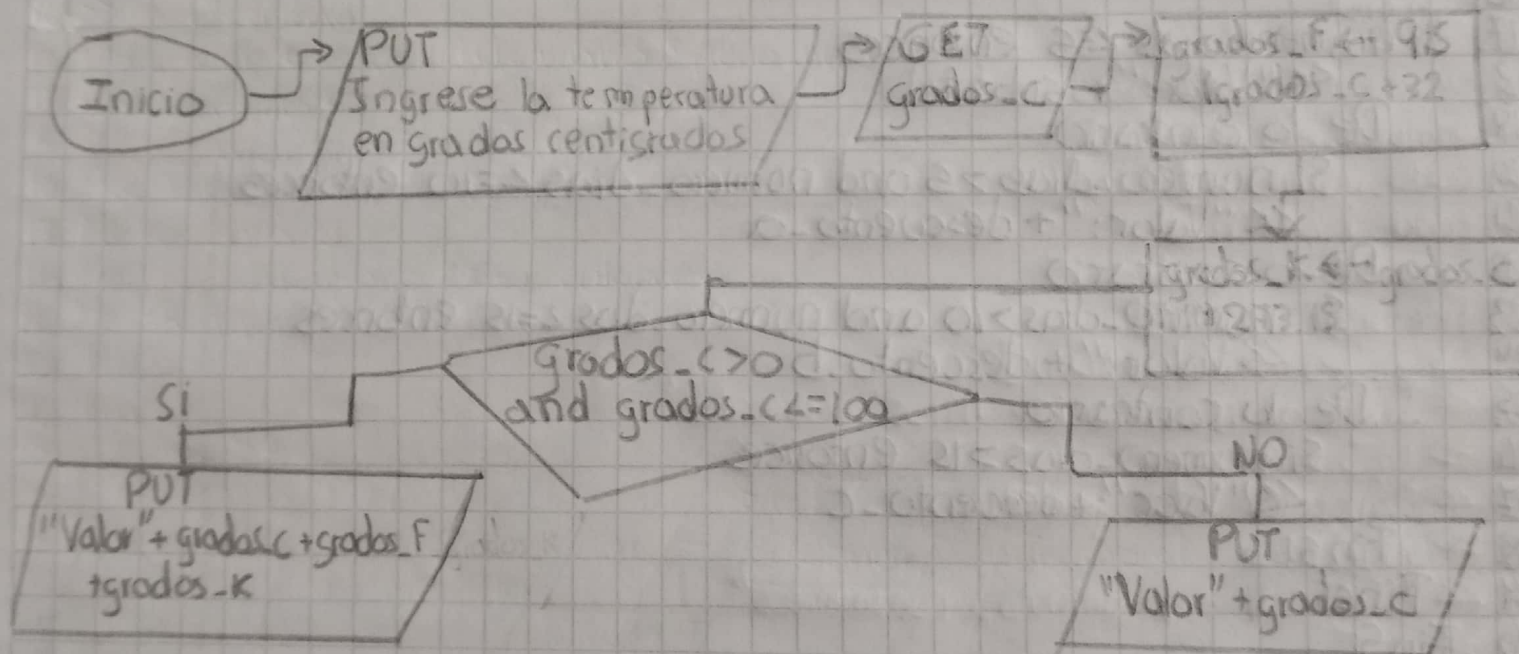 Inicio
PUT
Ingrese la temperatura
en grados centigrados
GET
grados_C
grados_F ← 9/5
grados_C + 32
grados_K ← grados_C
grados_C>0
and grados_C<=100
Si
PUT
"Valor" + grados_C + grados_F
+grados_K
NO
PUT
"Valor" + grados_C